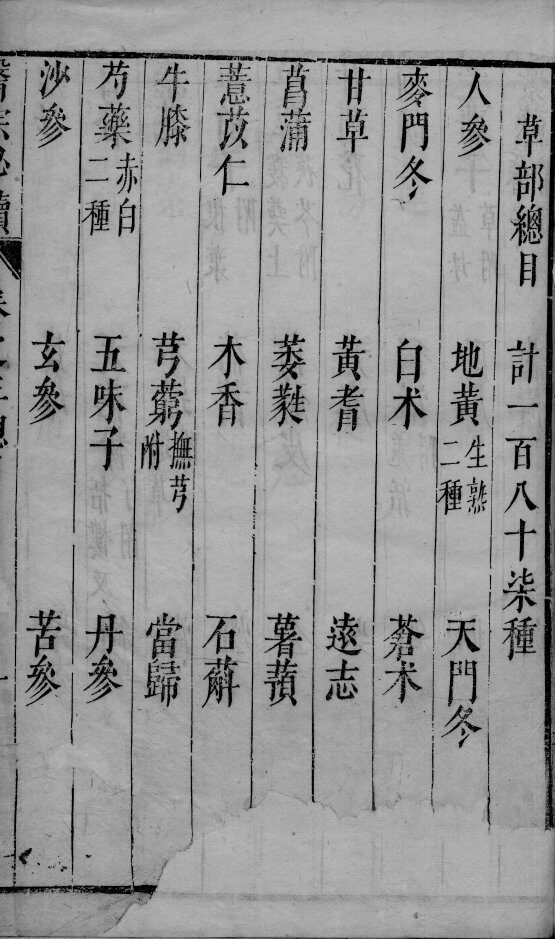 草部總目　計一百八十柒種
人參　地黃生熟二種　天門冬
麥門冬　白朮　蒼朮
甘草　黃耆　遠志
菖蒲　萎蕤　薯蕷
薏苡仁　木香　石斛
牛膝　芎藭撫芎附　當歸
芍藥赤白二種　五味子　丹參
沙參　玄參　苦參
醫宗必讀